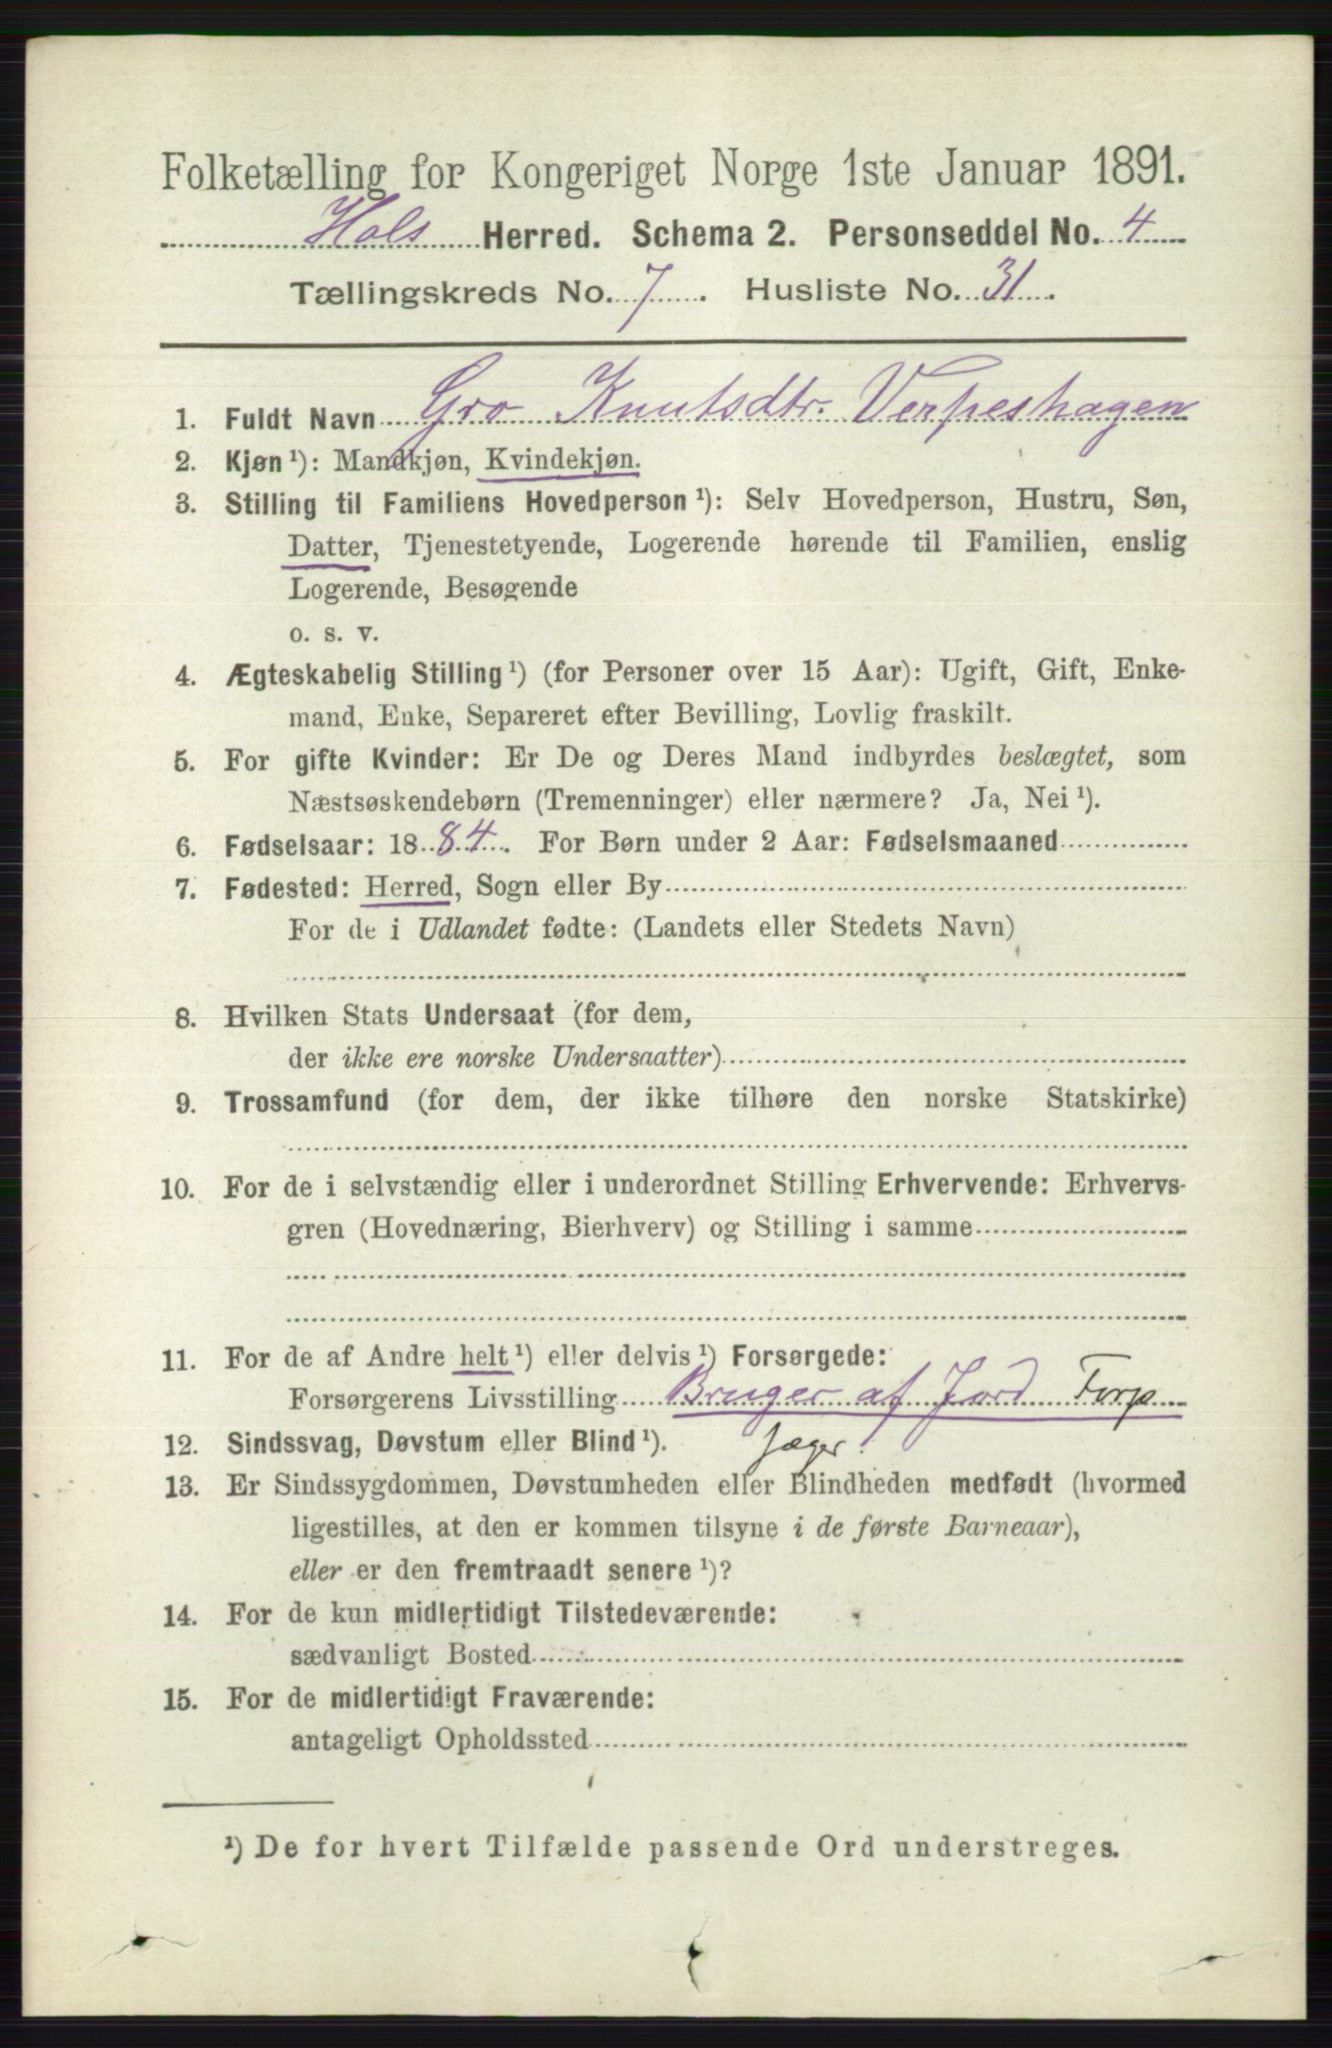 Folketælling for Kongeriget Norge 1ste Januar 1891.
Hols Herred. Schema 2. Personseddel No. 4
Tællingskreds No. 7. Husliste No. 31.
1. Fuldt Navn Gro Knutsdtr. Verpeshagen
2. Kjøn ¹): Mandkjøn, Kvindekjøn.
3. Stilling til Familiens Hovedperson ¹): Selv Hovedperson, Hustru, Søn,
Datter, Tjenestetyende, Logerende hørende til Familien, enslig
Logerende, Besøgende
o. s. v.
4. Ægteskabelig Stilling ¹) (for Personer over 15 Aar): Ugift, Gift, Enke-
mand, Enke, Separeret efter Bevilling, Lovlig fraskilt.
5. For gifte Kvinder: Er De og Deres Mand indbyrdes beslægtet, som
Næstsøskendebørn (Tremenninger) eller nærmere? Ja, Nei ¹).
6. Fødselsaar: 1884. For Børn under 2 Aar: Fødselsmaaned
7. Fødested: Herred, Sogn eller By
For de i Udlandet fødte: (Landets eller Stedets Navn)
8. Hvilken Stats Undersaat (for dem,
der ikke ere norske Undersaatter)
9. Trossamfund (for dem, der ikke tilhøre den norske Statskirke)
10. For de i selvstændig eller i underordnet Stilling Erhvervende: Erhvervs-
gren (Hovednæring, Bierhverv) og Stilling i samme
11. For de af Andre helt ¹) eller delvis ¹) Forsørgede:
Forsørgerens Livsstilling Bruger af Jord Torp
12. Sindssvag, Døvstum eller Blind ¹). Jæger.
13. Er Sindssygdommen, Døvstumheden eller Blindheden medfødt (hvormed
ligestilles, at den er kommen tilsyne i de første Barneaar),
eller er den fremtraadt senere ¹)?
14. For de kun midlertidigt Tilstedeværende:
sædvanligt Bosted
15. For de midlertidigt Fraværende:
antageligt Opholdssted
¹) De for hvert Tilfælde passende Ord understreges.